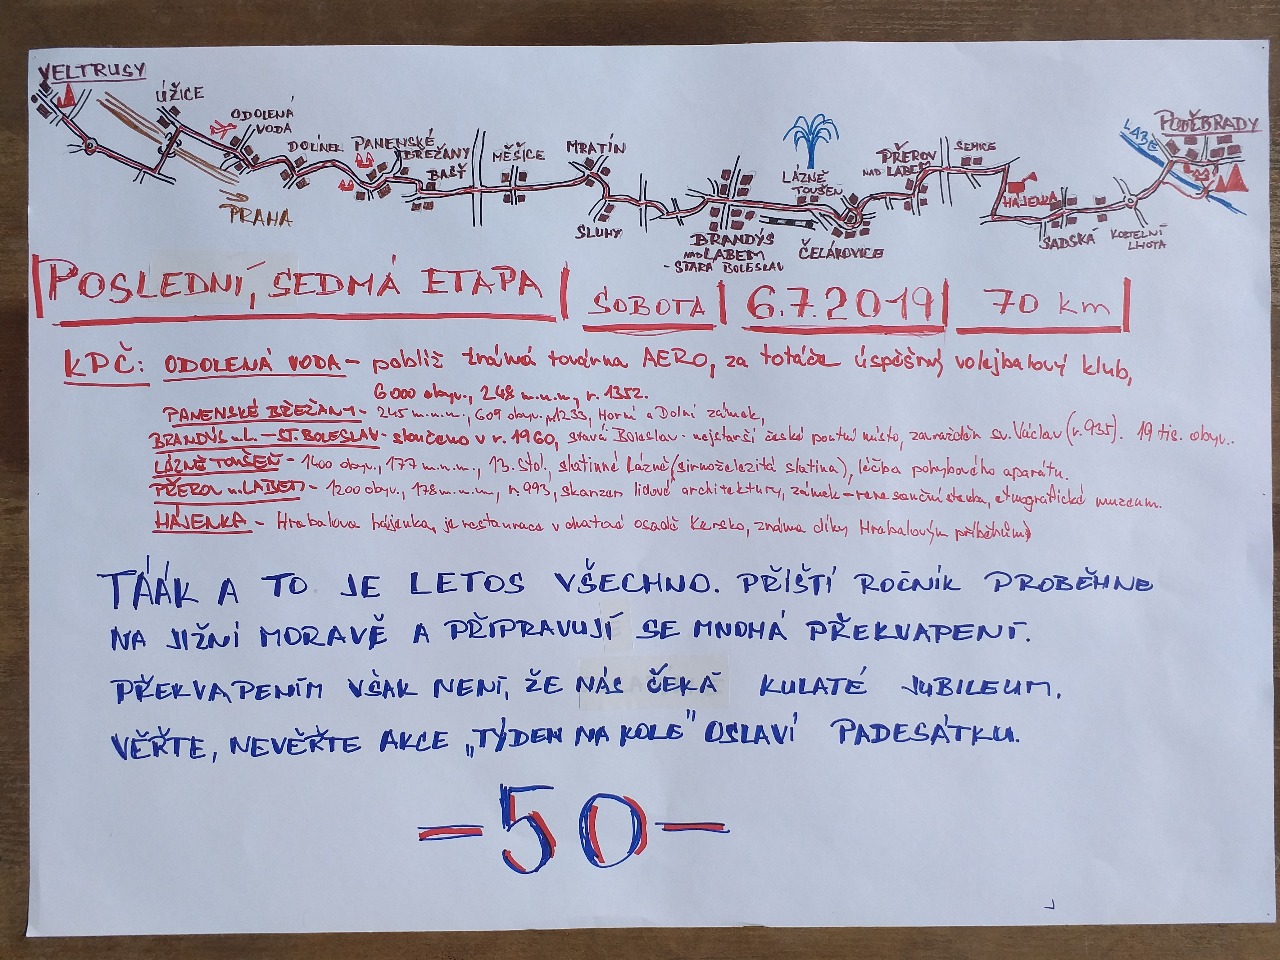 VELTRUSY
ÚŽICE
ODOLENÁ
VODA
PRAHA
DOLÍNEK
PANENSKÉ
BŘEŽANY
BAŠŤ
MĚŠICE
MRATÍN
SLUHY
BRANDÝS
NAD LABEM
- STARÁ BOLESLAV
LÁZNĚ
TOUŠEŇ
ČELÁKOVICE
PŘEROV
NAD LABEM
SEMICE
HÁJENKA
SADSKÁ
KOSTELNÍ
LHOTA
LABE
PODĚBRADY
POSLEDNÍ, SEDMÁ ETAPA | SOBOTA | 6.7.2019 | 70 km |
KPČ: ODOLENÁ VODA - poblíž známá továrna AERO, za totáče úspěšný volejbalový klub,
6000 obyv., 248 m.n.m., r. 1352.
PANENSKÉ BŘEŽANY - 245 m.n.m., 609 obyv., r. 1233, Horní a Dolní zámek,
BRANDÝS n.L. - ST. BOLESLAV - sloučeno v r. 1960, stará Boleslav - nejstarší české poutní místo, zavražděn sv. Václav (r. 935). 19 tis. obyv..
LÁZNĚ TOUŠEŇ - 1400 obyv., 177 m.n.m., 13. stol., slatinné lázně (sirnoželezitá slatina), léčba pohybového aparátu.
PŘEROV n. LABEM - 1200 obyv., 178 m.n.m., r. 993, skanzen lidové architektury, zámek - renesanční stavba, etnografické muzeum.
HÁJENKA - Hrabalova hájenka, je restaurace v chatové osadě Kersko, známa díky Hrabalovým příběhům)
TÁÁK A TO JE LETOS VŠECHNO. PŘÍŠTÍ ROČNÍK PROBĚHNE
NA JIŽNÍ MORAVĚ A PŘIPRAVUJÍ SE MNOHÁ PŘEKVAPENÍ.
PŘEKVAPENÍM VŠAK NENÍ, ŽE NÁS ČEKÁ KULATÉ JUBILEUM.
VĚŘTE, NEVĚŘTE AKCE „TÝDEN NA KOLE" OSLAVÍ PADESÁTKU.
- 50 -